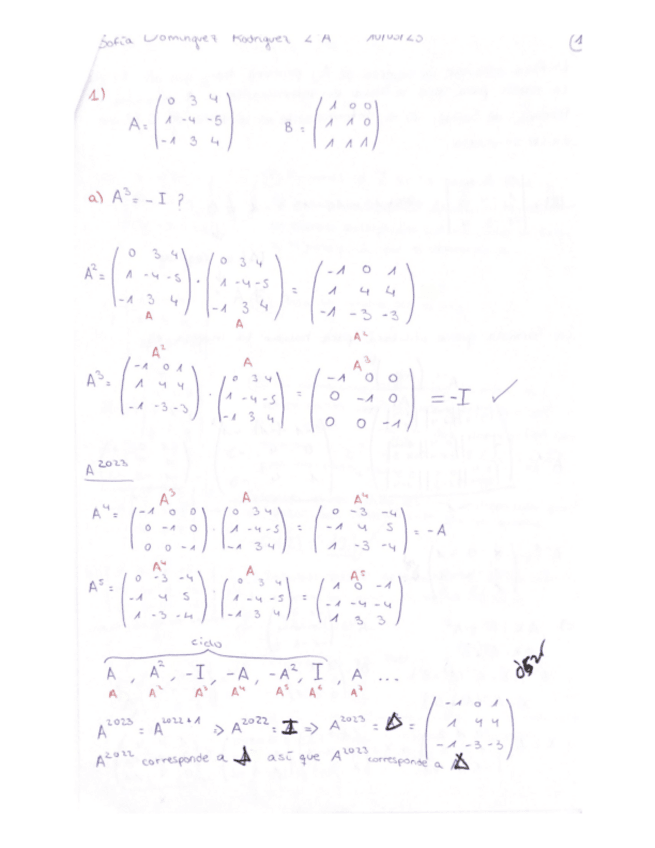 Sofía Domínguez Rodríguez 2ºA (1
1)
A = ( 0 3 4 ; 1 -4 -5 ; -1 3 4 ) B = ( 1 0 0 ; 1 1 0 ; 1 1 1 )
a) A³ = - I ?
A² = ( 0 3 4 ; 1 -4 -5 ; -1 3 4 ) · ( 0 3 4 ; 1 -4 -5 ; -1 3 4 ) = ( -1 0 1 ; 1 4 4 ; -1 -3 -3 )
A A A²
A² A A³
A³ = ( -1 0 1 ; 1 4 4 ; -1 -3 -3 ) · ( 0 3 4 ; 1 -4 -5 ; -1 3 4 ) = ( -1 0 0 ; 0 -1 0 ; 0 0 -1 ) = -I ✓
A²⁰²³
A³ A A⁴
A⁴ = ( -1 0 0 ; 0 -1 0 ; 0 0 -1 ) · ( 0 3 4 ; 1 -4 -5 ; -1 3 4 ) = ( 0 -3 -4 ; -1 4 5 ; 1 -3 -4 ) = -A
A⁴ A A⁵
A⁵ = ( 0 -3 -4 ; -1 4 5 ; 1 -3 -4 ) · ( 0 3 4 ; 1 -4 -5 ; -1 3 4 ) = ( 1 0 -1 ; -1 -4 -4 ; 1 3 3 )
ciclo
A , A² , -I , -A , -A² , I , A ...
A A² A³ A⁴ A⁵ A⁶
A²⁰²³ = A²⁰²²⁺¹ => A²⁰²² = I => A²⁰²³ = A = ( -1 0 1 ; 1 4 4 ; -1 -3 -3 )
A²⁰²² corresponde a así que A²⁰²³ corresponde a A